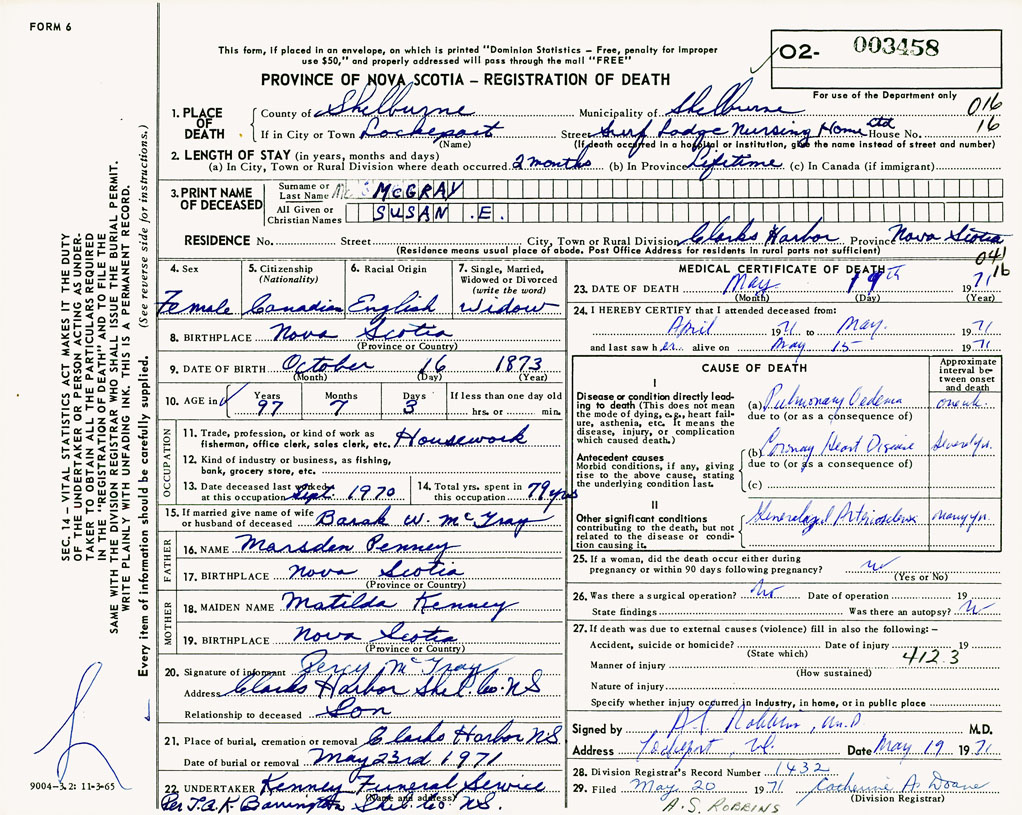 FORM 6
This form, if placed in an envelope, on which is printed "Dominion Statistics – Free, penalty for improper
use $50," and properly addressed will pass through the mail "FREE"
PROVINCE OF NOVA SCOTIA – REGISTRATION OF DEATH
02- 003458
For use of the Department only
016
16
1. PLACE OF DEATH
County of Shelburne Municipality of Shelburne
If in City or Town Lockeport Street Surf Lodge Nursing Home Ltd House No.
(Name) (If death occurred in a hospital or institution, give the name instead of street and number)
2. LENGTH OF STAY (in years, months and days)
(a) In City, Town or Rural Division where death occurred 2 months (b) In Province Lifetime (c) In Canada (if immigrant)
3. PRINT NAME OF DECEASED
Surname or Last Name McGRAY
All Given or Christian Names SUSAN .E.
RESIDENCE No. Street City, Town or Rural Division Clarks Harbor Province Nova Scotia
(Residence means usual place of abode. Post Office Address for residents in rural parts not sufficient)
041
16
4. Sex Female
5. Citizenship (Nationality) Canadian
6. Racial Origin English
7. Single, Married, Widowed or Divorced (write the word) Widow
8. BIRTHPLACE Nova Scotia
(Province or Country)
9. DATE OF BIRTH October 16 1873
(Month) (Day) (Year)
10. AGE in Years 97 Months 7 Days 3 If less than one day old hrs. or min.
OCCUPATION
11. Trade, profession, or kind of work as fisherman, office clerk, sales clerk, etc. Housework
12. Kind of industry or business, as fishing, bank, grocery store, etc.
13. Date deceased last worked at this occupation Sept. 1970
14. Total yrs. spent in this occupation 79 yrs
15. If married give name of wife or husband of deceased Barak W. McGray
FATHER
16. NAME Marsden Penney
17. BIRTHPLACE Nova Scotia
(Province or Country)
MOTHER
18. MAIDEN NAME Matilda Kenney
19. BIRTHPLACE Nova Scotia
(Province or Country)
20. Signature of informant Percy McGray
Address Clarks Harbor Shel. Co. NS
Relationship to deceased Son
21. Place of burial, cremation or removal Clarks Harbor NS
Date of burial or removal May 23rd 1971
22. UNDERTAKER Kenney Funeral Service
(Name and address)
Per T.A.K Barrington Shel. Co. NS.
MEDICAL CERTIFICATE OF DEATH
23. DATE OF DEATH May 19th 1971
(Month) (Day) (Year)
24. I HEREBY CERTIFY that I attended deceased from:
April 1971 to May. 1971
and last saw her alive on May 15 1971
CAUSE OF DEATH
Approximate interval between onset and death
I
Disease or condition directly leading to death (This does not mean the mode of dying, e.g., heart failure, asthenia, etc. It means the disease, injury, or complication which caused death.)
(a) Pulmonary Oedema one wk.
due to (or as a consequence of)
Antecedent causes
Morbid conditions, if any, giving rise to the above cause, stating the underlying condition last.
(b) Coronary Heart Disease Several yr.
due to (or as a consequence of)
(c)
II
Other significant conditions contributing to the death, but not related to the disease or condition causing it.
Generalized Arteriosclerosis many yr.
25. If a woman, did the death occur either during pregnancy or within 90 days following pregnancy? no
(Yes or No)
26. Was there a surgical operation? No Date of operation 19
State findings Was there an autopsy? N
27. If death was due to external causes (violence) fill in also the following: –
Accident, suicide or homicide? Date of injury 19
(State which)
412.3
Manner of injury
(How sustained)
Nature of injury
Specify whether injury occurred in industry, in home, or in public place
Signed by A S Robbins, M.D M.D.
Address Lockeport, Date May 19 1971
28. Division Registrar's Record Number 1432
29. Filed May 20 1971 Catherine A. Doane
(Division Registrar)
A.S. ROBBINS
SEC. 14 – VITAL STATISTICS ACT MAKES IT THE DUTY
OF THE UNDERTAKER OR PERSON ACTING AS UNDER-
TAKER TO OBTAIN ALL THE PARTICULARS REQUIRED
IN THE "REGISTRATION OF DEATH" AND TO FILE THE
SAME WITH THE DIVISION REGISTRAR WHO SHALL ISSUE THE BURIAL PERMIT.
WRITE PLAINLY WITH UNFADING INK. THIS IS A PERMANENT RECORD.
Every item of information should be carefully supplied. (See reverse side for instructions.)
9004-3.2: 11-3-65